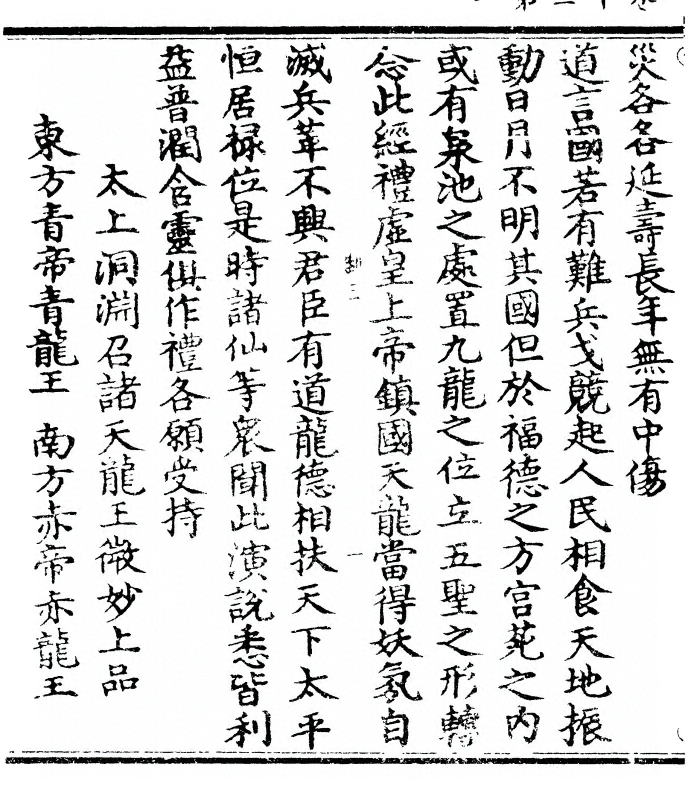 災各各延壽長年無有中傷
道言國若有難兵戈競起人民相食天地振
動日月不明其國但於福德之方宮苑之內
或有泉池之處置九龍之位立五聖之形轉
念此經禮虛皇上帝鎮國天龍當得妖氛自
滅兵革不興君臣有道龍德相扶天下太平
恒居祿位是時諸仙等衆聞此演說悉皆利
益普潤含靈俱作禮各願受持
太上洞淵召諸天龍王微妙上品
東方青帝青龍王 南方赤帝赤龍王